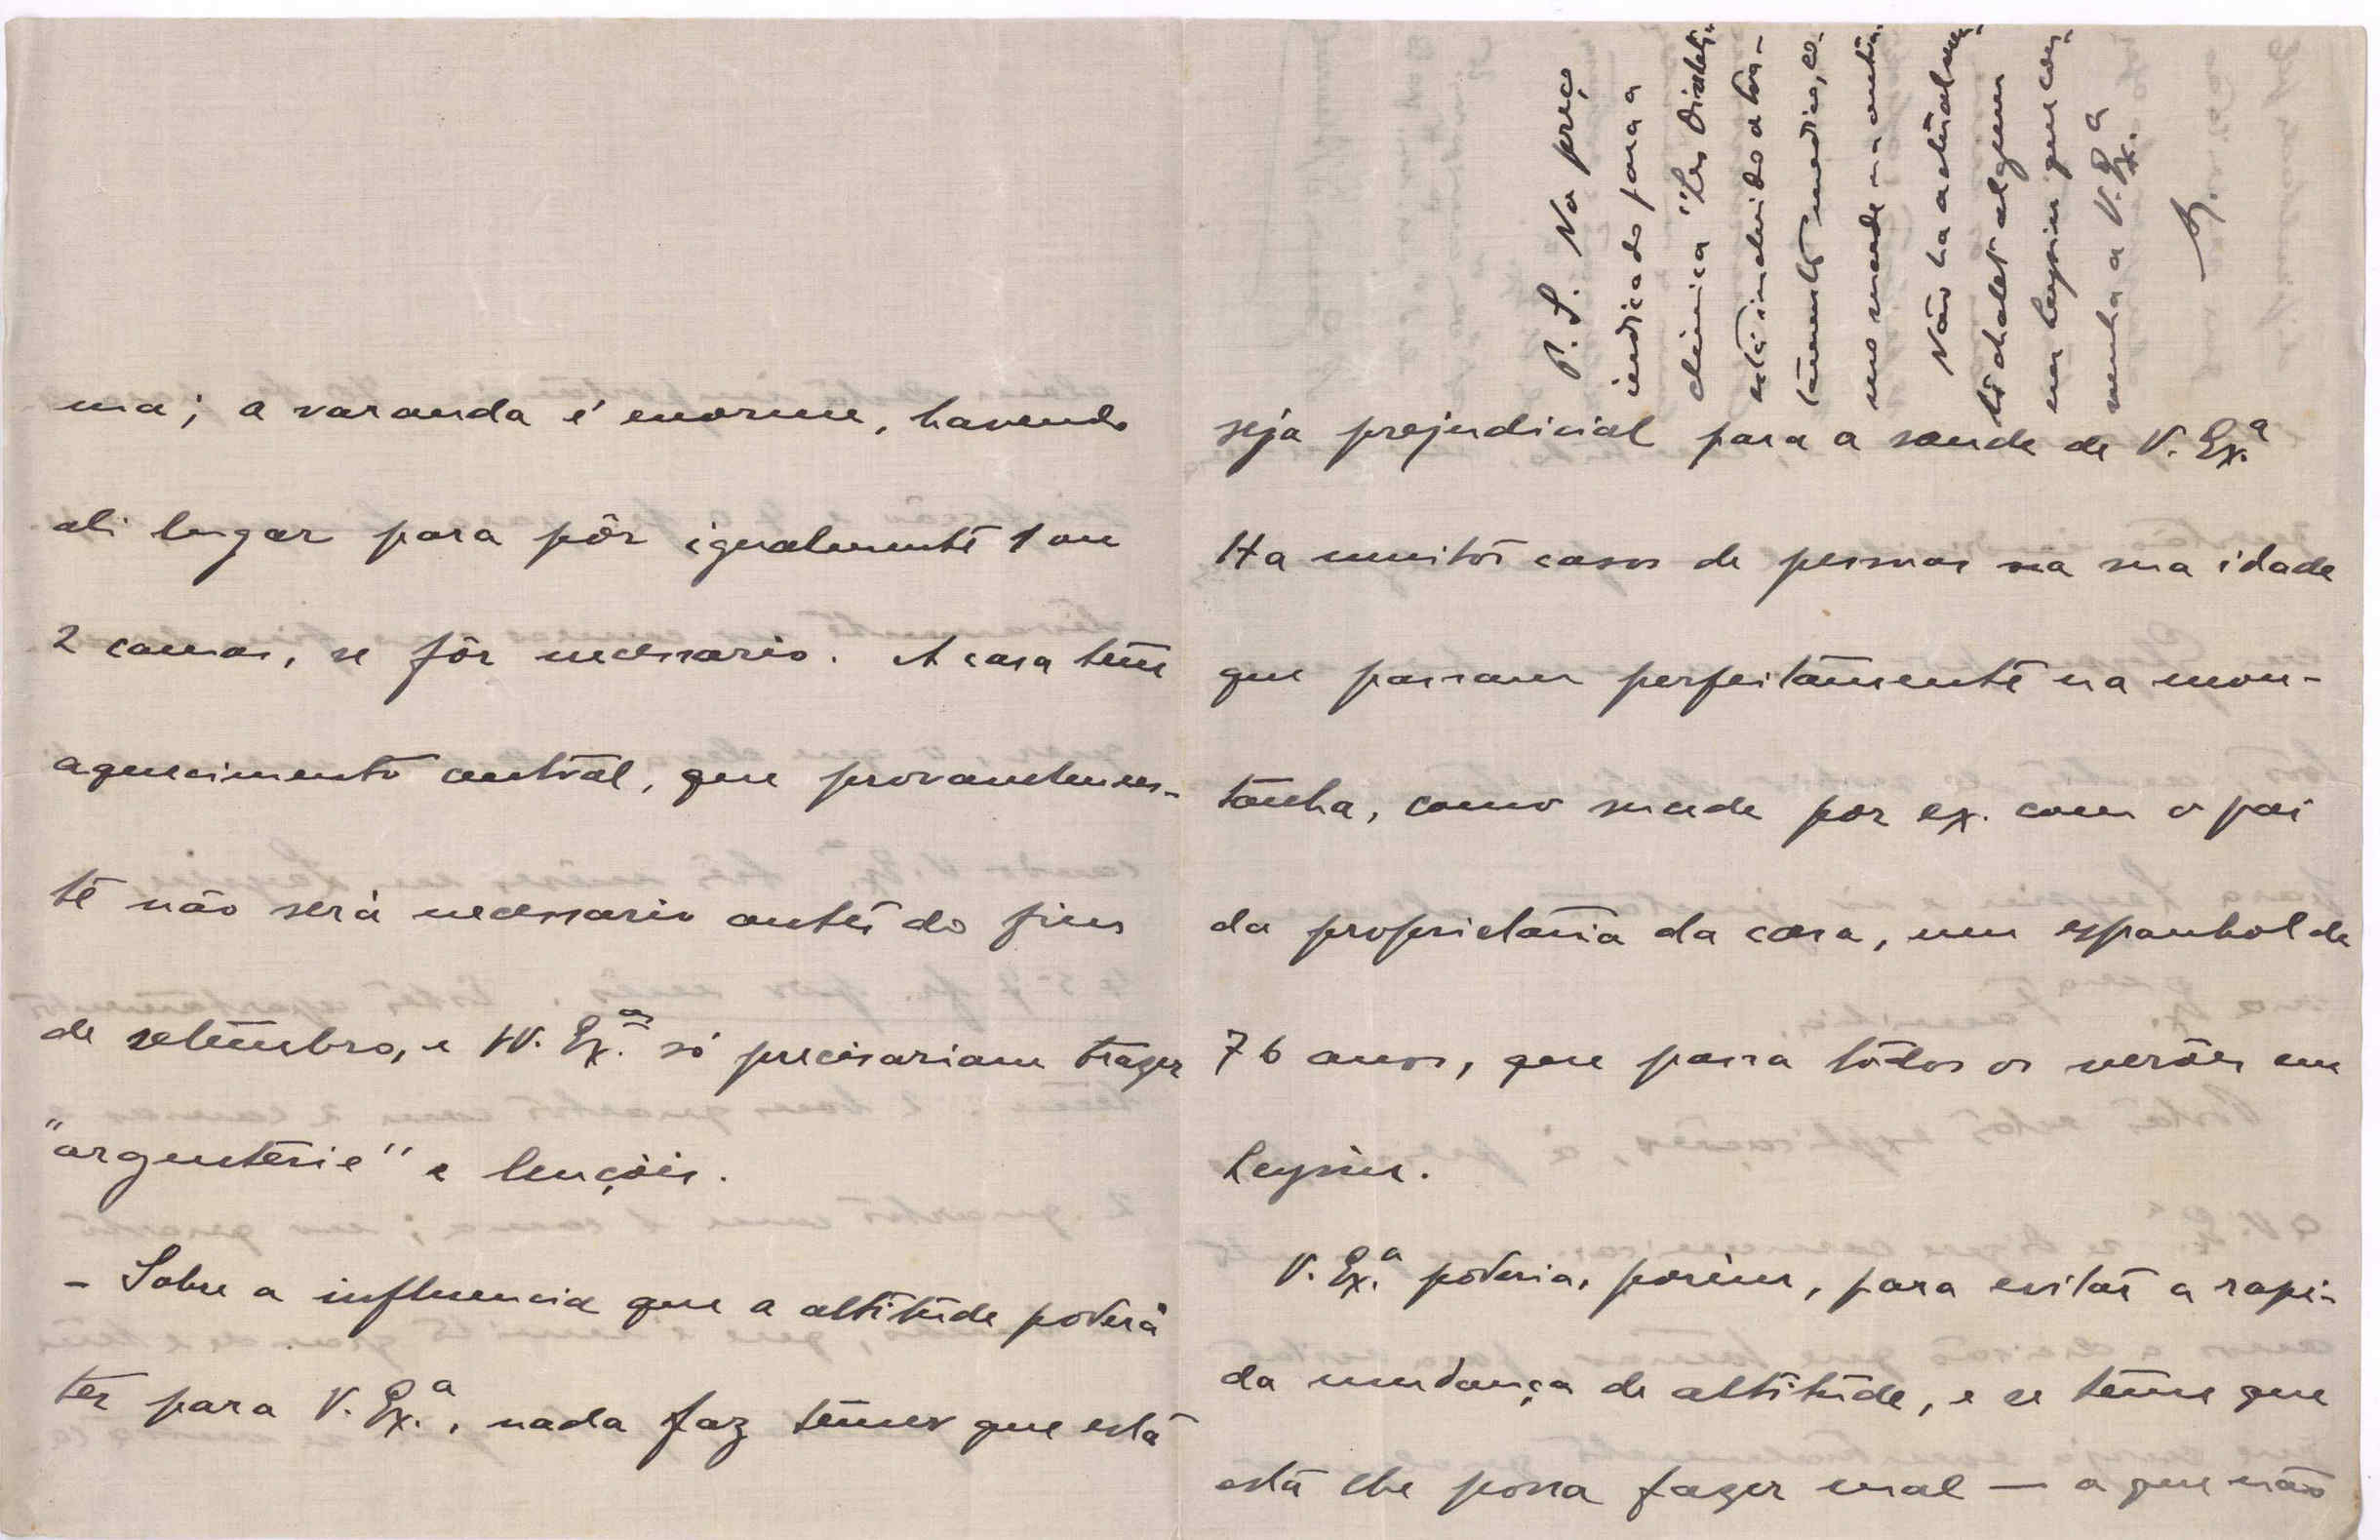 ma; a varanda é enorme, havendo
ali lugar para pôr igualmente 1 ou
2 camas, se fôr necessario. A casa tem
aquecimento central, que provavelmen-
te não será necessario antes do fim
de setembro, e VV. Ex.as só precisariam trazer
"argenterie" e lençois.
- Sobre a influencia que a altitude poderá
ter para V. Ex.a, nada faz temer que esta
seja prejudicial para a saude de V. Ex.a
Ha muitos casos de pessoas na sua idade
que passam perfeitamente na mon-
tanha, como sucede por ex. com o pai
da proprietaria da casa, um espanhol de
76 anos, que passa todos os verões em
Leysin.
V. Ex.a poderia, porém, para evitar a rapi-
da mudança de altitude, e se teme que
esta lhe possa fazer mal — a que não
P. S. No preço
indicado para a
clinica "Les
está incluido o tra-
tamento medico, co-
mo sucede na outra.
Não ha actualmen-
te chalet algum
em Leysin que con-
venha a V. Ex.a